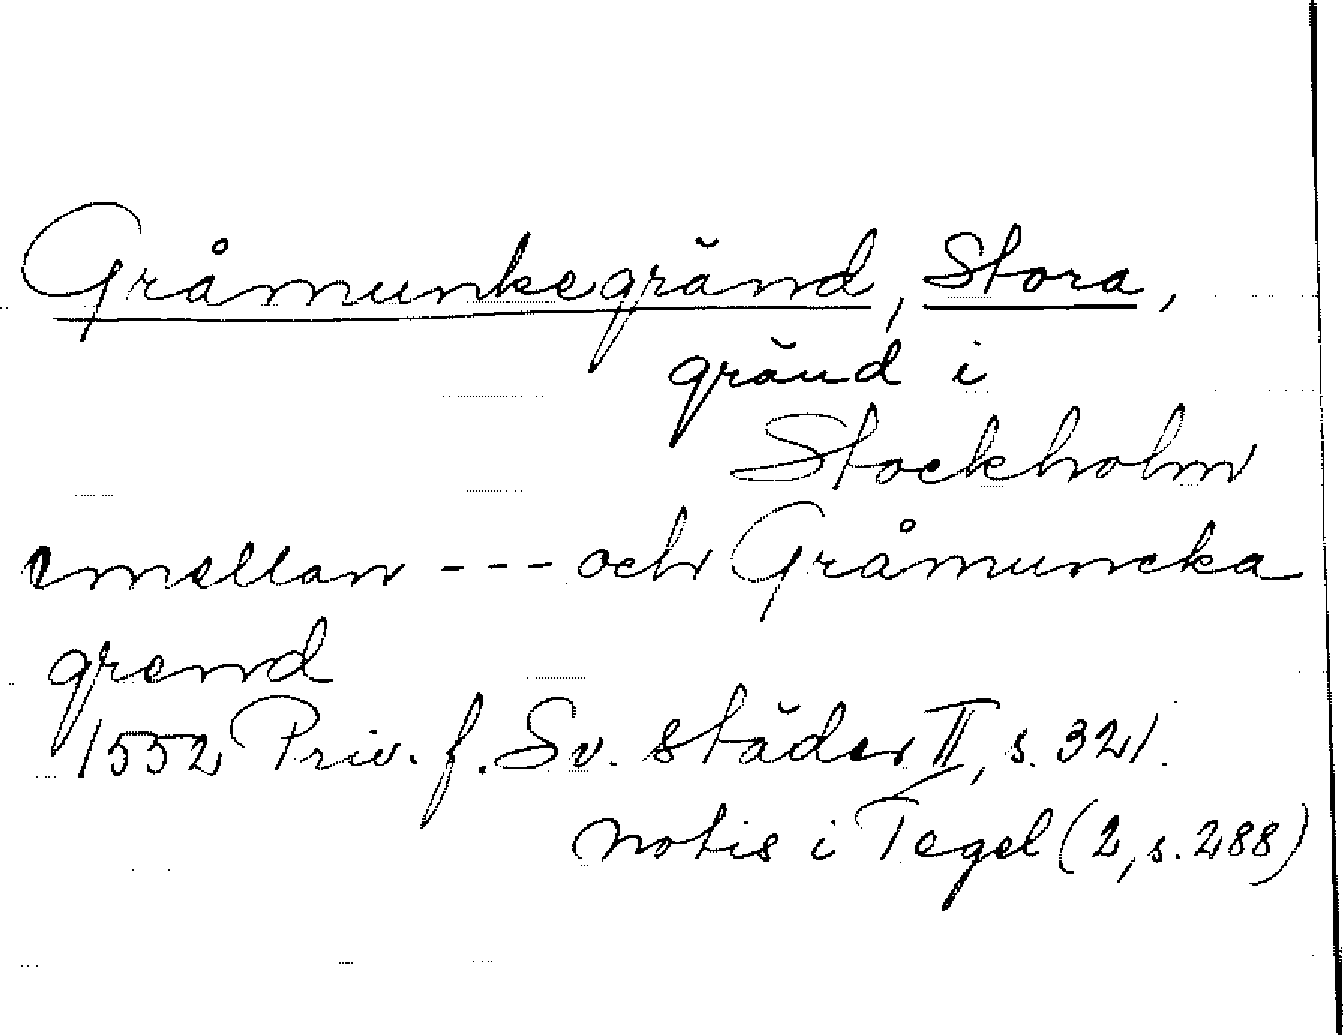 Gråmunkegränd, Stora,
gränd i
Stockholm
emellan --- och Gråmuncka
grend
1552 Priv. f. Sv. städer II, s. 321.
notis i Tegel (2, s. 288)